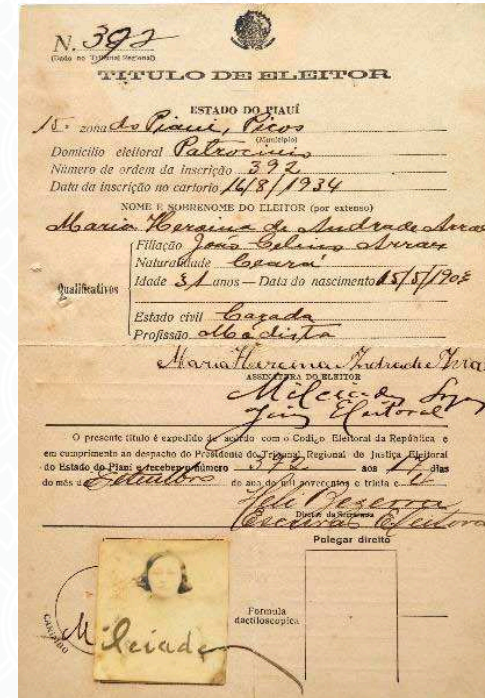 N. 392
(Dado no Tribunal Regional)
TITULO DE ELEITOR
ESTADO DO PIAUÍ
15.ª zona do Piaui, Picos
(Municipio)
Domicilio eleitoral Patrocinio
Número de ordem da inscrição 392
Data da inscrição no cartorio 14/8/1934
NOME E SOBRENOME DO ELEITOR (por extenso)
Maria Heroina de Andrade Arraes
Filiação João Celino Arraes
Naturalidade Ceará
Qualificativos
Idade 31 anos — Data do nascimento 15/5/190
Estado civil Cazada
Profissão Modista
Maria Heroina Andrade
ASSINATURA DO ELEITOR
Milciades
Juiz Eleitoral
O presente titulo é expedido de acôrdo com o Codigo Eleitoral da República e
em cumprimento ao despacho do Presidente do Tribunal Regional de Justiça Eleitoral
do Estado do Piauí e recebeu o número 392 aos 17 dias
do mês de Setembro do ano de mil novecentos e trinta e
Heli Bezerra
Diretor da Secretaria
Escrivão Eleitoral
Polegar direito
Formula
dactiloscopica
CARIMBO
Milciades